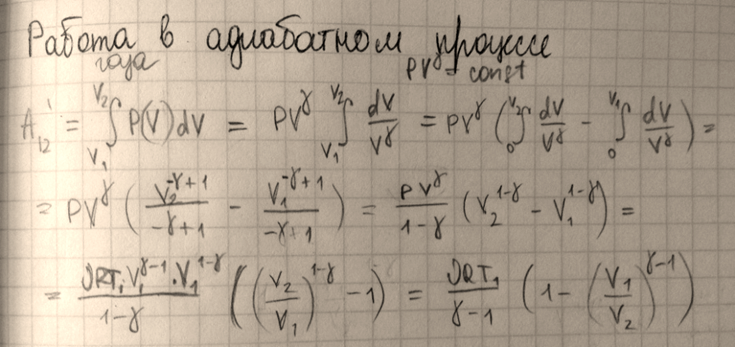 Работа в адиабатном процессе
газа PV^γ = const
A'₁₂ = ∫_{V₁}^{V₂} P(V)dV = PV^γ ∫_{V₁}^{V₂} dV/V^γ = PV^γ (∫_0^{V₂} dV/V^γ − ∫_0^{V₁} dV/V^γ) =
= PV^γ (V₂^{-γ+1}/(-γ+1) − V₁^{-γ+1}/(-γ+1)) = PV^γ/(1-γ) (V₂^{1-γ} − V₁^{1-γ}) =
= (νRT₁V₁^{γ-1}·V₁^{1-γ})/(1-γ) ((V₂/V₁)^{1-γ} − 1) = νRT₁/(γ-1) (1 − (V₁/V₂)^{γ-1})